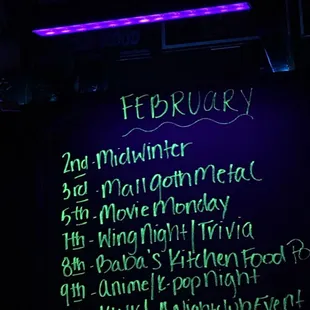 FEBRUARY
2nd - Midwinter
3rd - Mallgoth Metal
5th - Movie Monday
7th - Wing Night | Trivia
8th - Baba's Kitchen Food Po
9th - Anime | K-pop night
Nightclub Event